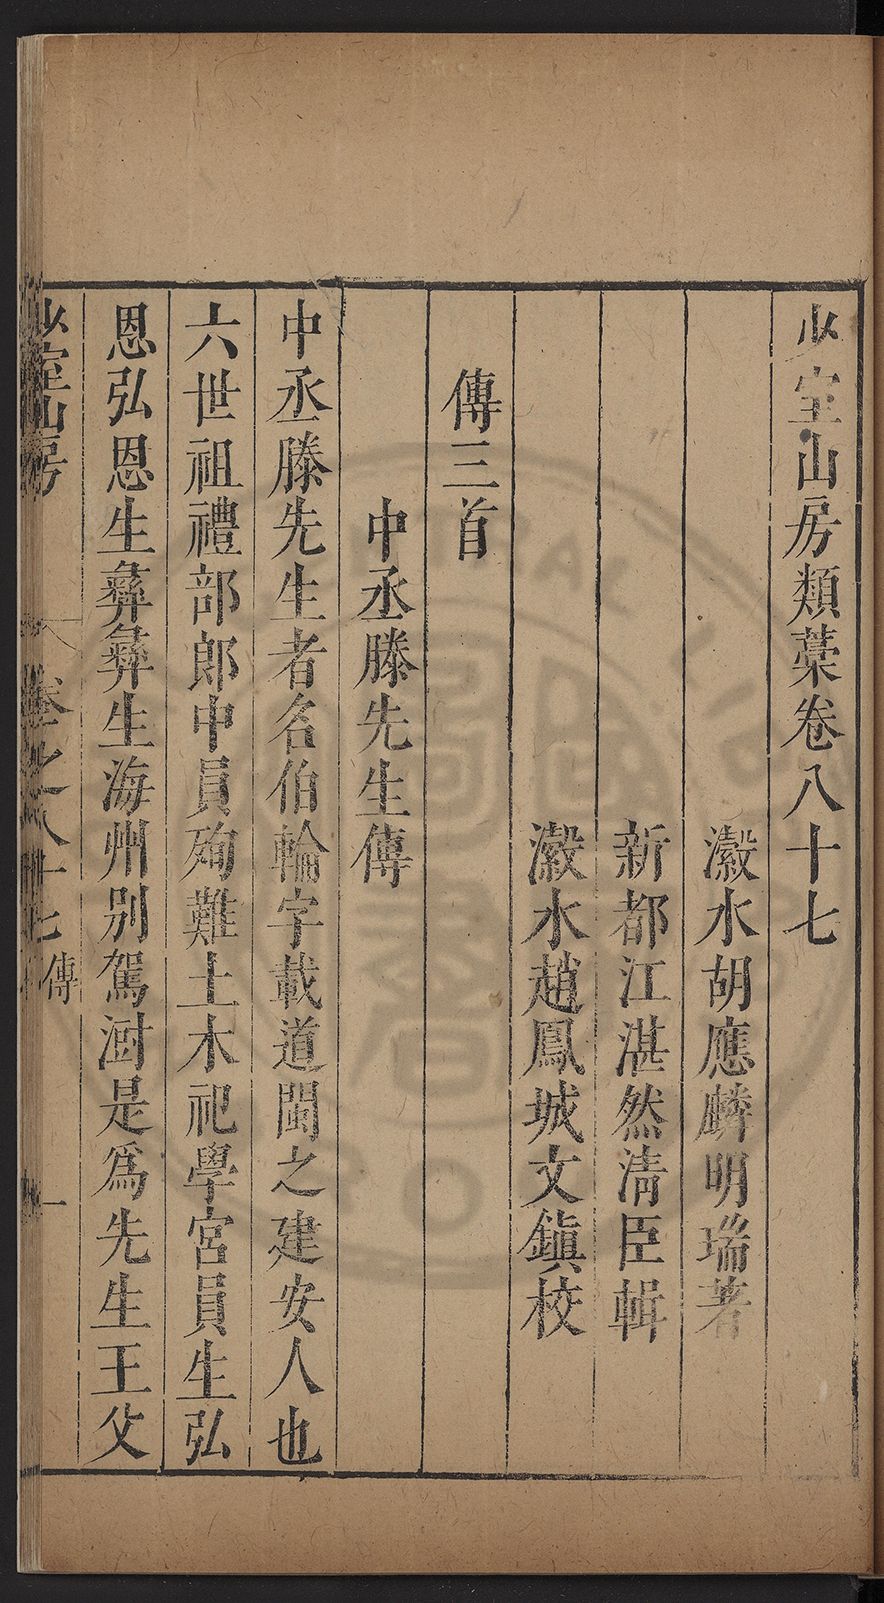 少室山房類藁卷八十七
瀫水胡應麟明瑞著
新都江湛然清臣輯
瀫水趙鳳城文鎮校
傳三首
中丞滕先生傳
中丞滕先生者名伯輪字載道閩之建安人也
六世祖禮部郎中員殉難土木祀學宮員生弘
恩弘恩生彝彝生海州别駕澍是爲先生王父
少室山房
卷之八十七 傳
一